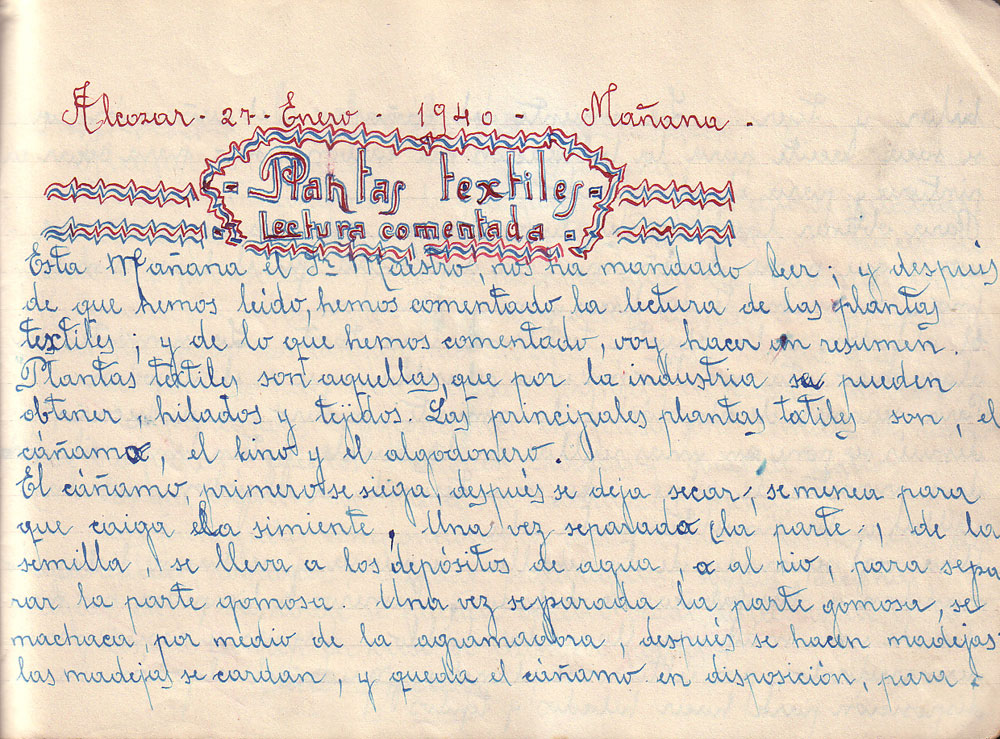 Alcozar - 27 - Enero - 1940 - Mañana -
Plantas textiles
Lectura comentada
Esta Mañana el Sr. Maestro, nos ha mandado leer; y después
de que hemos leído, hemos comentado la lectura de las plantas
textiles; y de lo que hemos comentado, voy hacer un resumen.
Plantas táctiles son aquellas, que por la industria se pueden
obtener, hilados y tejidos. Las principales plantas táctiles son, el
cáñamo, el lino y el algodonero.
El cáñamo, primero se siega, después se deja secar, se menea para
que caiga la simiente. Una vez separada (la parte), de la
semilla, se lleva a los depósitos de agua, o al rio, para sepa
rar la parte gomosa. Una vez separada la parte gomosa, se
machaca, por medio de la agramadora, después se hacen madejas
las madejas se cardan, y queda el cáñamo en disposición, para